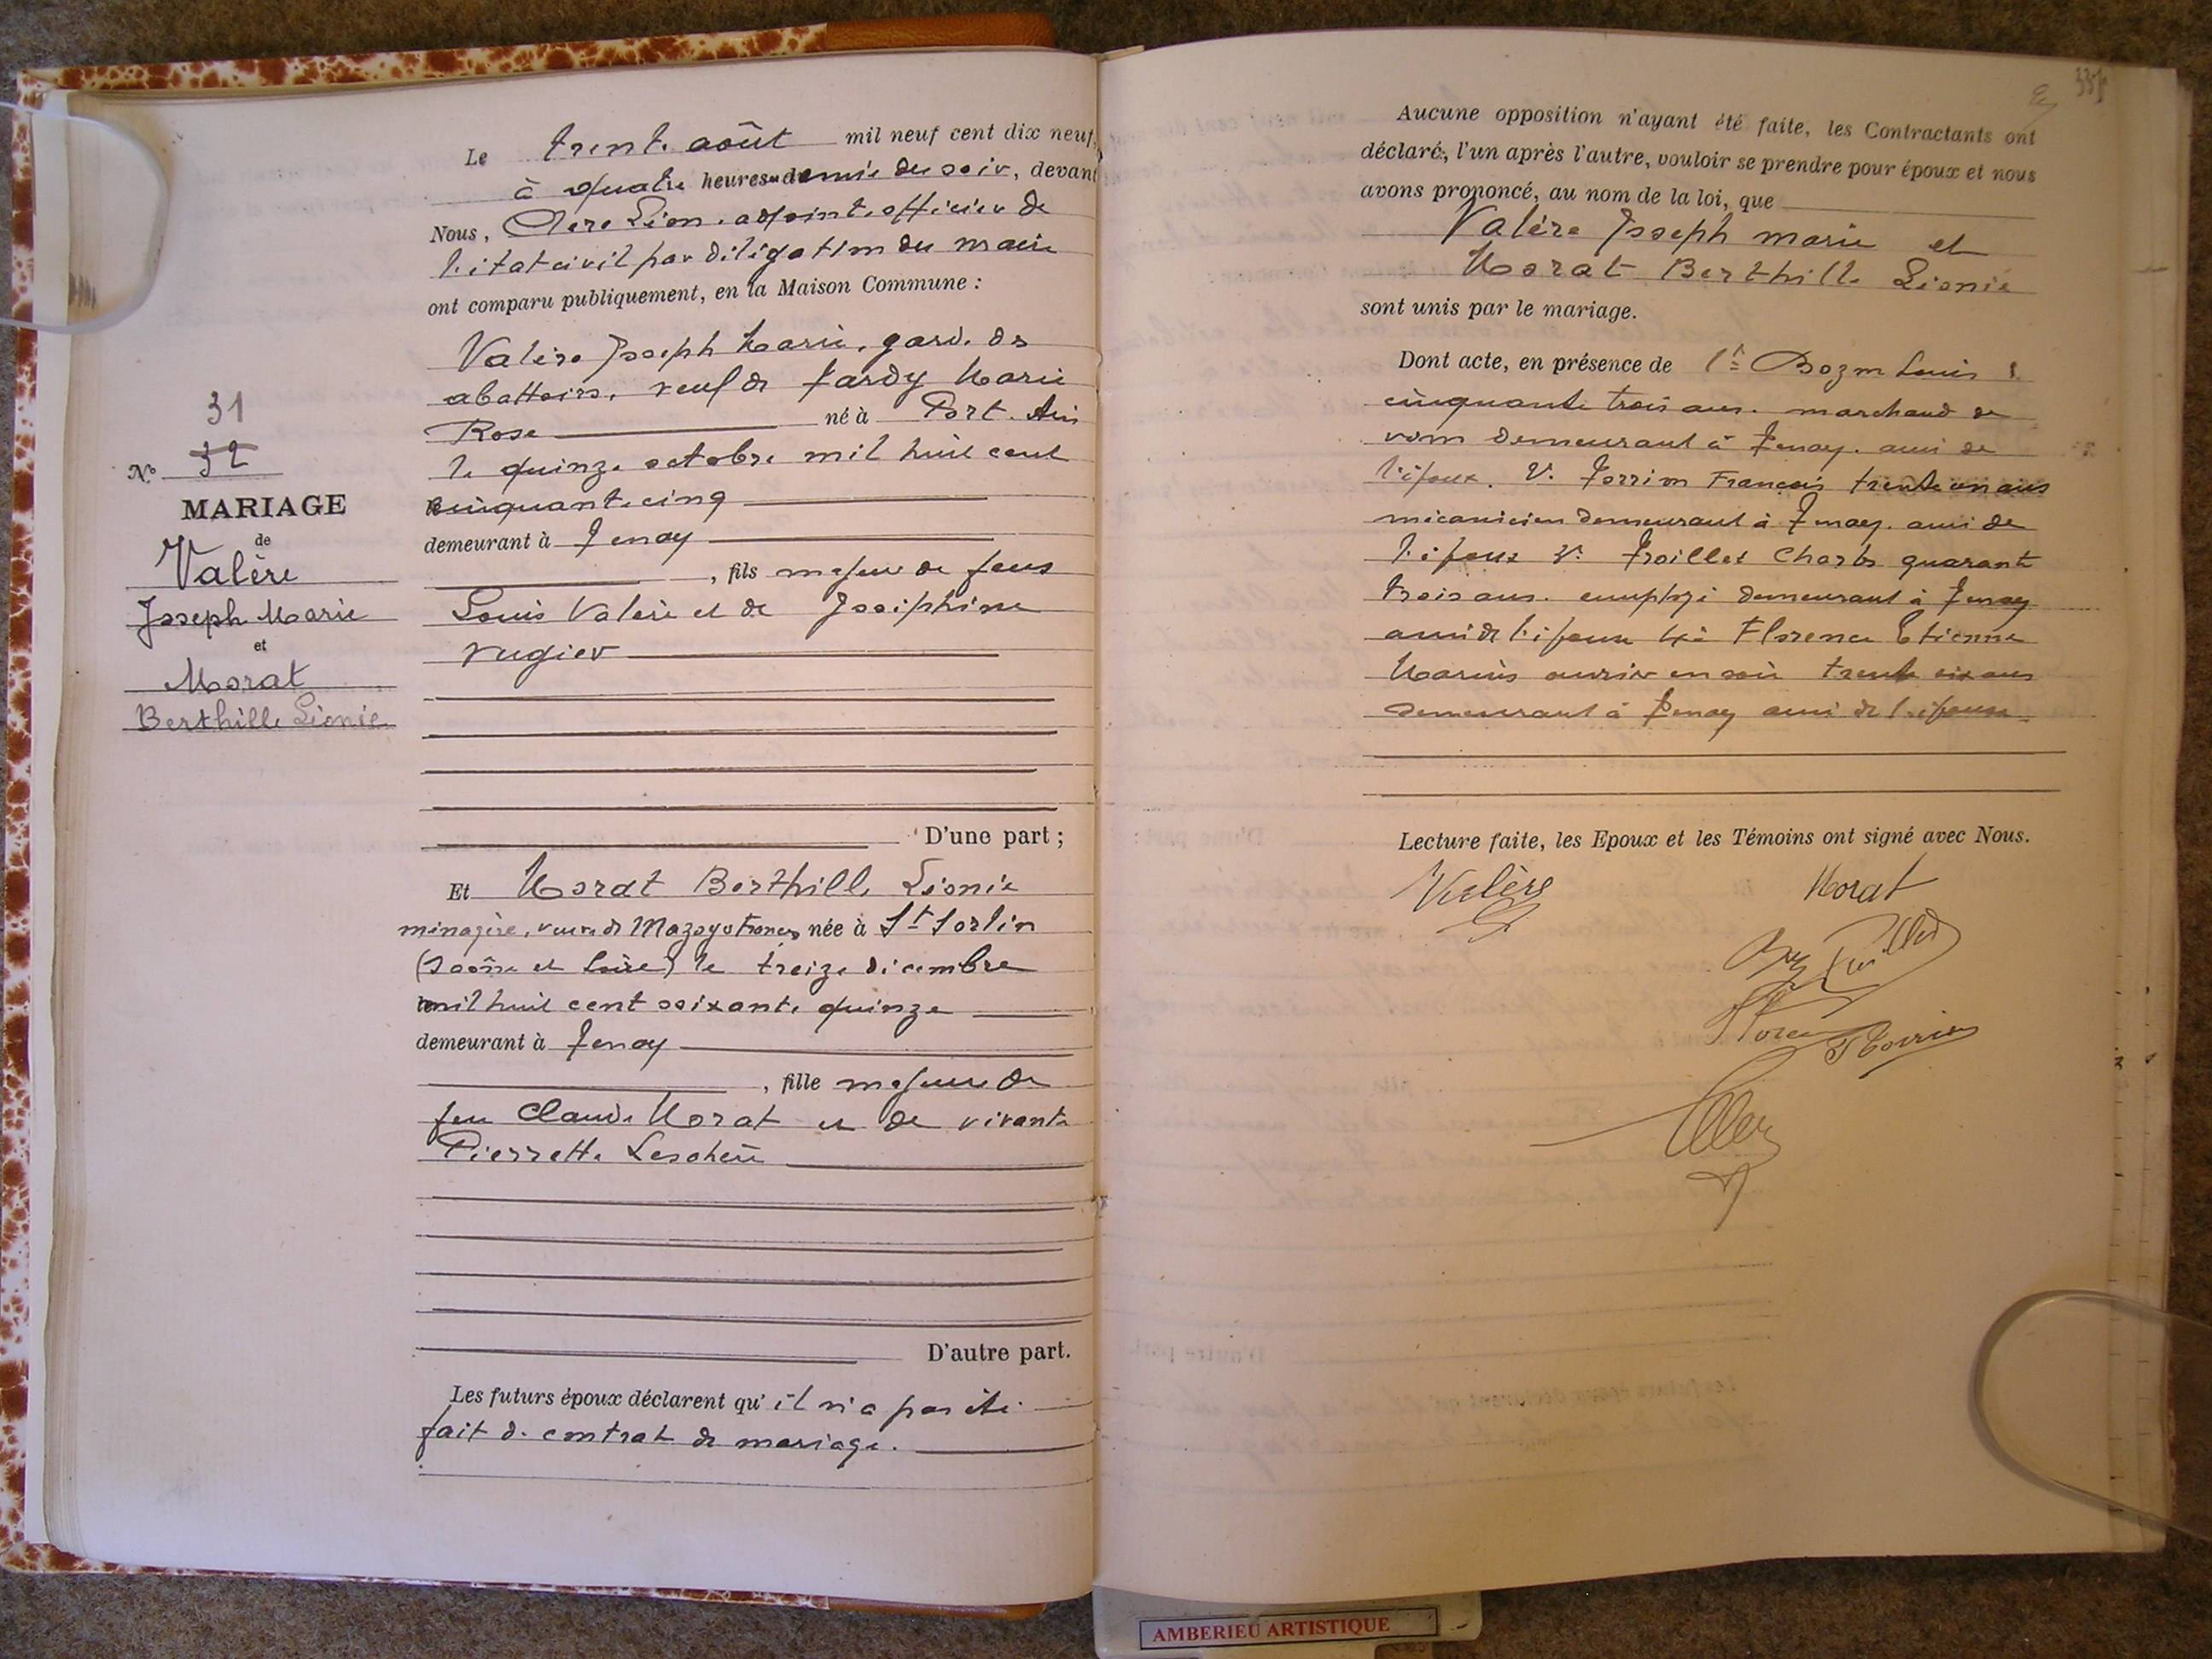 31
N° 32
MARIAGE
de
Valère
Joseph Marie
et
Morat
Berthille Léonie
Le trente août mil neuf cent dix neuf,
à quatre heures et demie du soir, devant
Nous, Léon adjoint officier de
l'état civil par délégation du maire
ont comparu publiquement, en la Maison Commune :
Valère Joseph Marie, garde des
abattoirs, veuf de Tardy Marie
Rose né à Port. Ain
le quinze octobre mil huit cent
cinquante cinq
demeurant à Tenay
, fils majeur de feus
Louis Valère et de Joséphine
rugier
D'une part ;
Et Morat Berthille Léonie
ménagère, veuve de née à St Sorlin
(Saône et Loire) le treize décembre
mil huit cent soixante quinze
demeurant à Tenay
, fille majeure de
feu Claude Morat et de vivante
Pierrette
D'autre part.
Les futurs époux déclarent qu'il n'a pas été
fait de contrat de mariage.
337
Aucune opposition n'ayant été faite, les Contractants ont
déclaré, l'un après l'autre, vouloir se prendre pour époux et nous
avons prononcé, au nom de la loi, que
Valère Joseph marie et
Morat Berthille Léonie
sont unis par le mariage.
Dont acte, en présence de 1° Bozon Louis
cinquante trois ans. marchand de
vin demeurant à Tenay. ami de
l'époux. François trente un ans
mécanicien demeurant à Tenay. ami de
l'époux Troillet Charles quarante
trois ans. employé demeurant à Tenay
ami de l'époux 4° Florence Etienne
Marius ouvrier en soie trente six ans
demeurant à Tenay ami de l'épouse.
Lecture faite, les Epoux et les Témoins ont signé avec Nous.
Valère Morat
AMBERIEU ARTISTIQUE